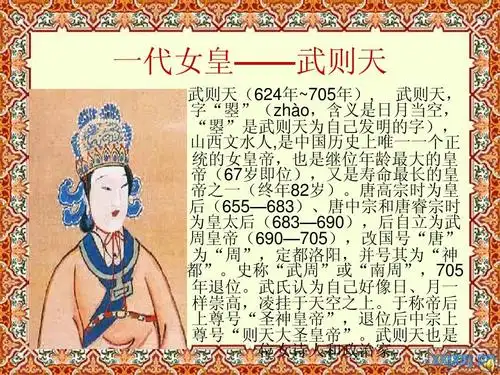 一代女皇——武则天
武则天（624年~705年），  武则天，
字“曌”（zhào，含义是日月当空，
“曌”是武则天为自己发明的字），
山西文水人,是中国历史上唯一一个正
统的女皇帝，也是继位年龄最大的皇
帝（67岁即位），又是寿命最长的皇
帝之一（终年82岁）。唐高宗时为皇
后（655—683）、唐中宗和唐睿宗时
为皇太后（683—690），后自立为武
周皇帝（690—705），改国号“唐”
为“周”，定都洛阳，并号其为“神
都”。史称“武周”或“南周”，705
年退位。武氏认为自己好像日、月一
样崇高，凌挂于天空之上。于称帝后
上尊号“圣神皇帝”，退位后中宗上
尊号“则天大圣皇帝”。武则天也是
一位女诗人和政治家。